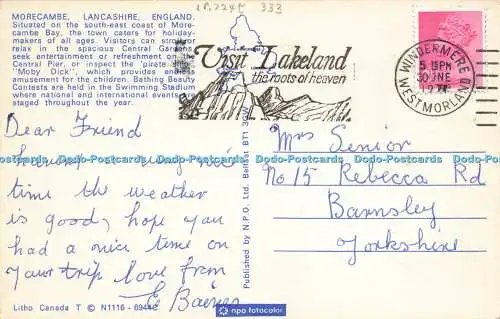 LP.7245 333
MORECAMBE, LANCASHIRE, ENGLAND.
Situated on the south-east coast of More-
cambe Bay, the town caters for holiday-
makers of all ages. Visitors can stroll or
relax in the spacious Central Gardens,
seek entertainment or refreshment on the
Central Pier, or inspect the "pirate ship"
"Moby Dick", which provides endless
amusement for the children. Bathing Beauty
Contests are held in the Swimming Stadium
where national and international events are
staged throughout the year.
Visit Lakeland
the roots of heaven
WINDERMERE
5 15PM
30 JNE
WESTMORLAND
Dear Friend
having a very nice
time the weather
is good, hope you
had a nice time on
your trip love from
E Baines
Published by N.P.O. Ltd. Belfast BT1 3GW
Mrs Senior
No 15 Rebecca Rd
Barnsley
Yorkshire
Litho Canada T © N1116 - 6944C
npo fotocolor
www.Delcampe.net
Dads-Postcards